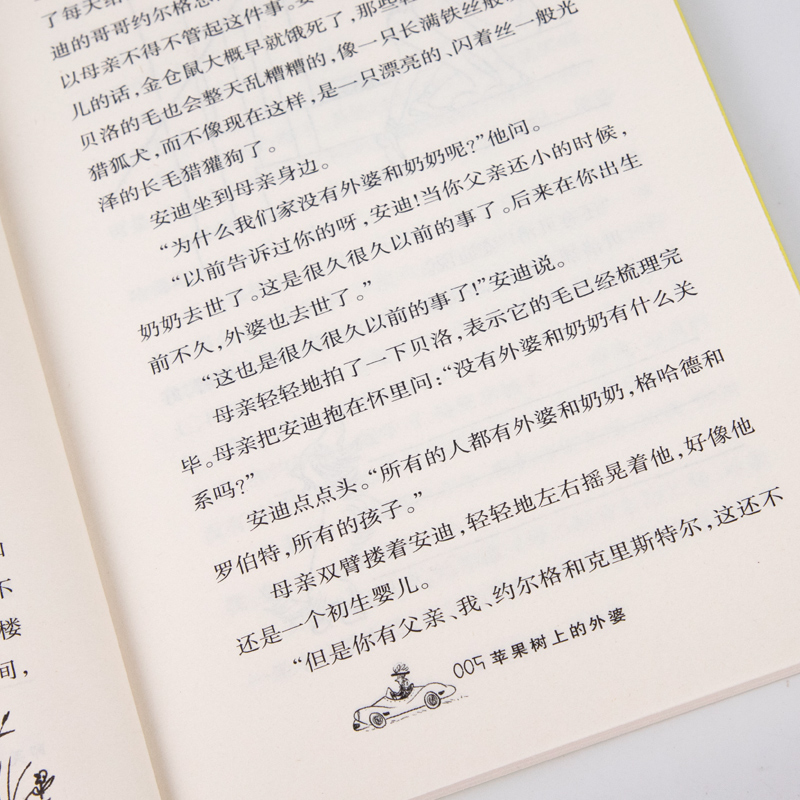 不
楼
间，
了每天给
迪的哥哥约尔格
以母亲不得不管起这件事。
儿的话，金仓鼠大概早就饿死了，那些
贝洛的毛也会整天乱糟糟的，像一只长满铁丝般
猎狐犬，而不像现在这样，是一只漂亮的、闪着丝一般光
泽的长毛猎獾狗了。
安迪坐到母亲身边。
“为什么我们家没有外婆和奶奶呢？”他问。
“以前告诉过你的呀，安迪！当你父亲还小的时候，
奶奶去世了。这是很久很久以前的事了。后来在你出生
前不久，外婆也去世了。”
“这也是很久很久以前的事了！”安迪说。
母亲轻轻地拍了一下贝洛，表示它的毛已经梳理完
毕。母亲把安迪抱在怀里问：“没有外婆和奶奶有什么关
系吗？”
安迪点点头。“所有的人都有外婆和奶奶，格哈德和
罗伯特，所有的孩子。”
母亲双臂搂着安迪，轻轻地左右摇晃着他，好像他
还是一个初生婴儿。
“但是你有父亲、我、约尔格和克里斯特尔，这还不
005 苹果树上的外婆